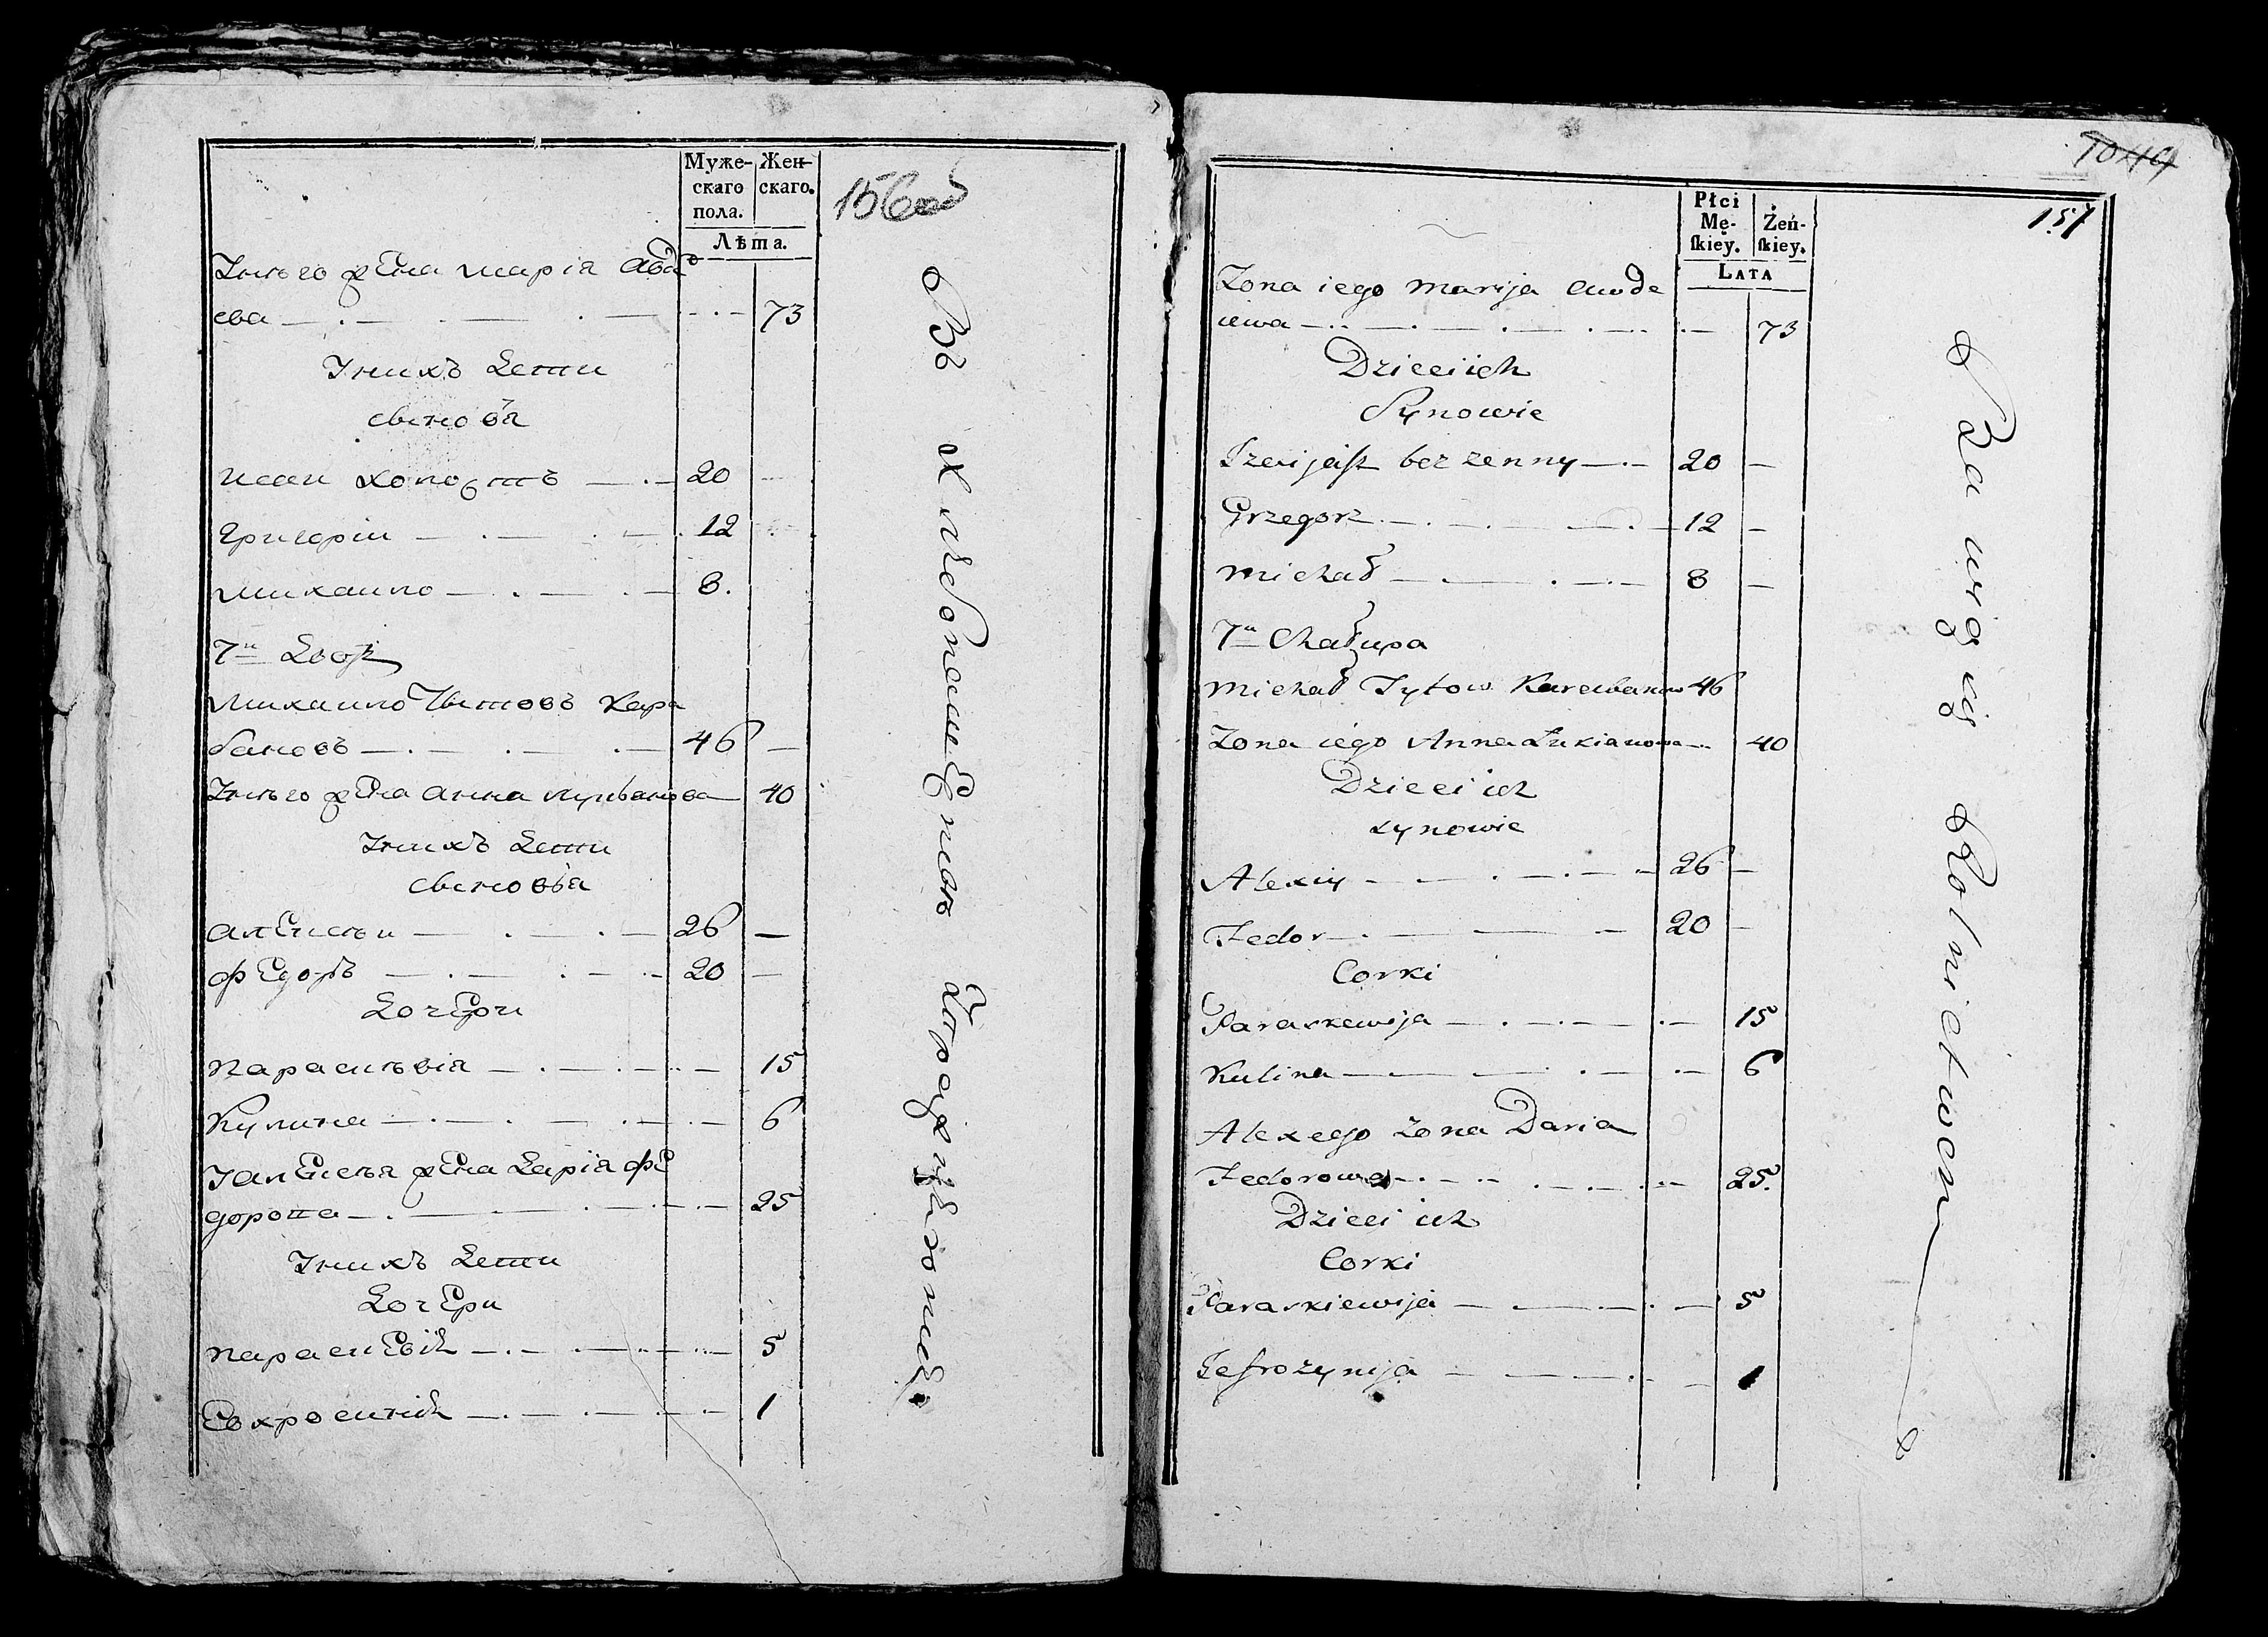 Муже-
скаго
пола.
Жен-
скаго.
Лѣта.
156об
жена марія авдѣ
ева 73
Ѹнихъ дети
сыновья
холостъ 20
григории 12
михаило 8.
7й дворъ
михаило Титовъ Кара
бановъ 46
жена анна лукьянова 40
Ѹнихъ дети
сыновья
алексѣи 26
федоръ 20
дочери
парасковія 15
Кулина 6
Ѹалексѣя жена дарія фе
дорова 25
Ѹнихъ дети
дочери
5
1
Въ хлебопашенномъ
1044
157
Płci
Mę-
skiey.
Żeń-
skiey.
LATA
Zona iego marija awde
iewa 73
Dzieci ich
Synowie
bezzenny 20
Grzegorz 12
michał 8
7a Chałupa
michał Tytow Karabanow 46
Zona iego Anna Łukianowa 40
Dzieci ich
synowie
Alexiy 26
Fedor 20
Corki
Paraskewija 15
Kulina 6
Alexego zona Daria
Fedorowa 25.
Dzieci ich
Corki
Paraskiewija 5
Jefrozynija 1
Bawią się Rolnictwem